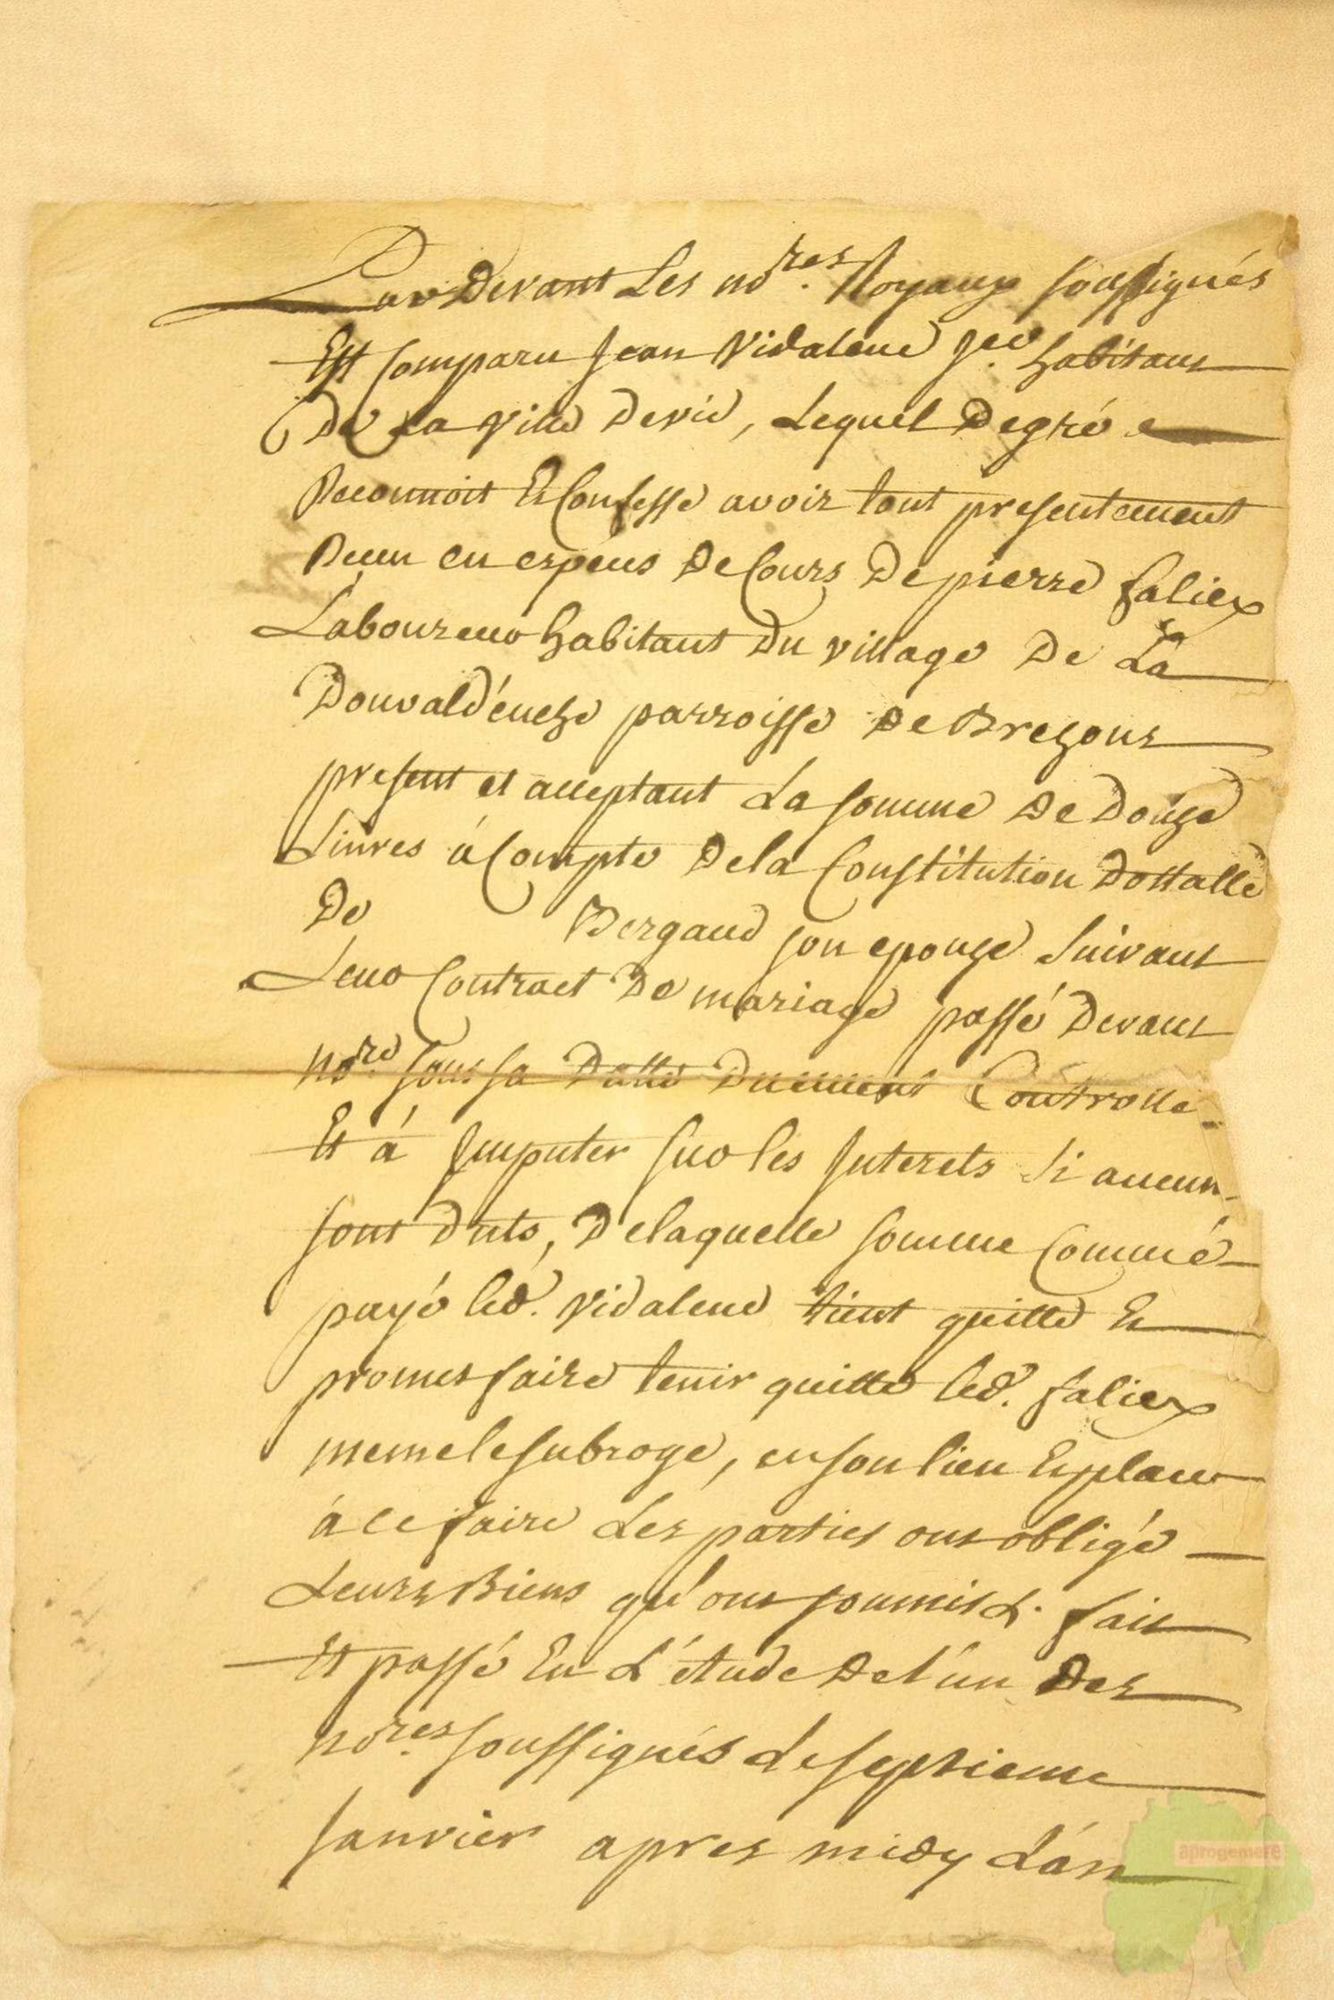 Par Devant Les no.res Royaux soussignés
Est Comparu Jean Vidalene Habitant
De La Ville Devic, Lequel Degré
Reconnoit Et Confesse avoir tout presentement
Reçu en espéces De Cours De pierre faliex
Laboureur habitant Du village De La
parroisse De Brezons
present et acceptant La somme De Douze
Livres à Compte De la Constitution Dottalle
De Bergaud son epouze Suivant
Leur Contract De mariage passé Devant
no.re sous sa Datte Duement Controllé
Et à Imputer sur les Interets Si aucun
sont Duts, De laquelle somme Comme
payé led. Vidalene tient quitte Et
promet faire tenir quitte led. faliex
meme le subroge, en son lieu Et place
à ce faire Les parties ont obligé
Leurs Biens qu'ont soumis &. fait
Et passé En L'étude De l'un Des
no.res soussignés Le septieme
Janvier apres midy L'an
aprogemere